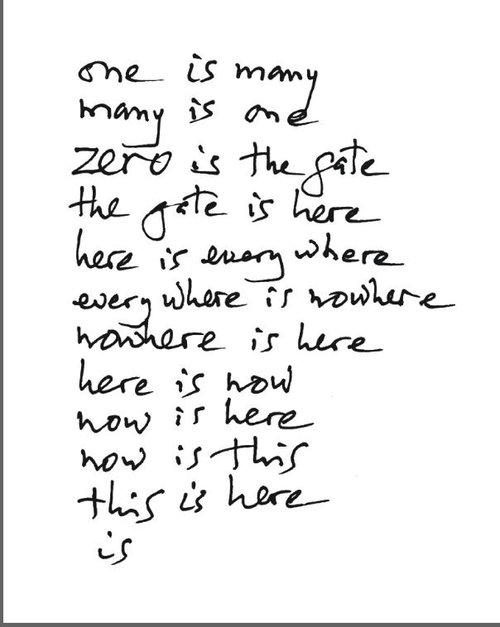 one is many
many is one
zero is the gate
the gate is here
here is everywhere
everywhere is nowhere
nowhere is here
here is now
now is here
now is this
this is here
is